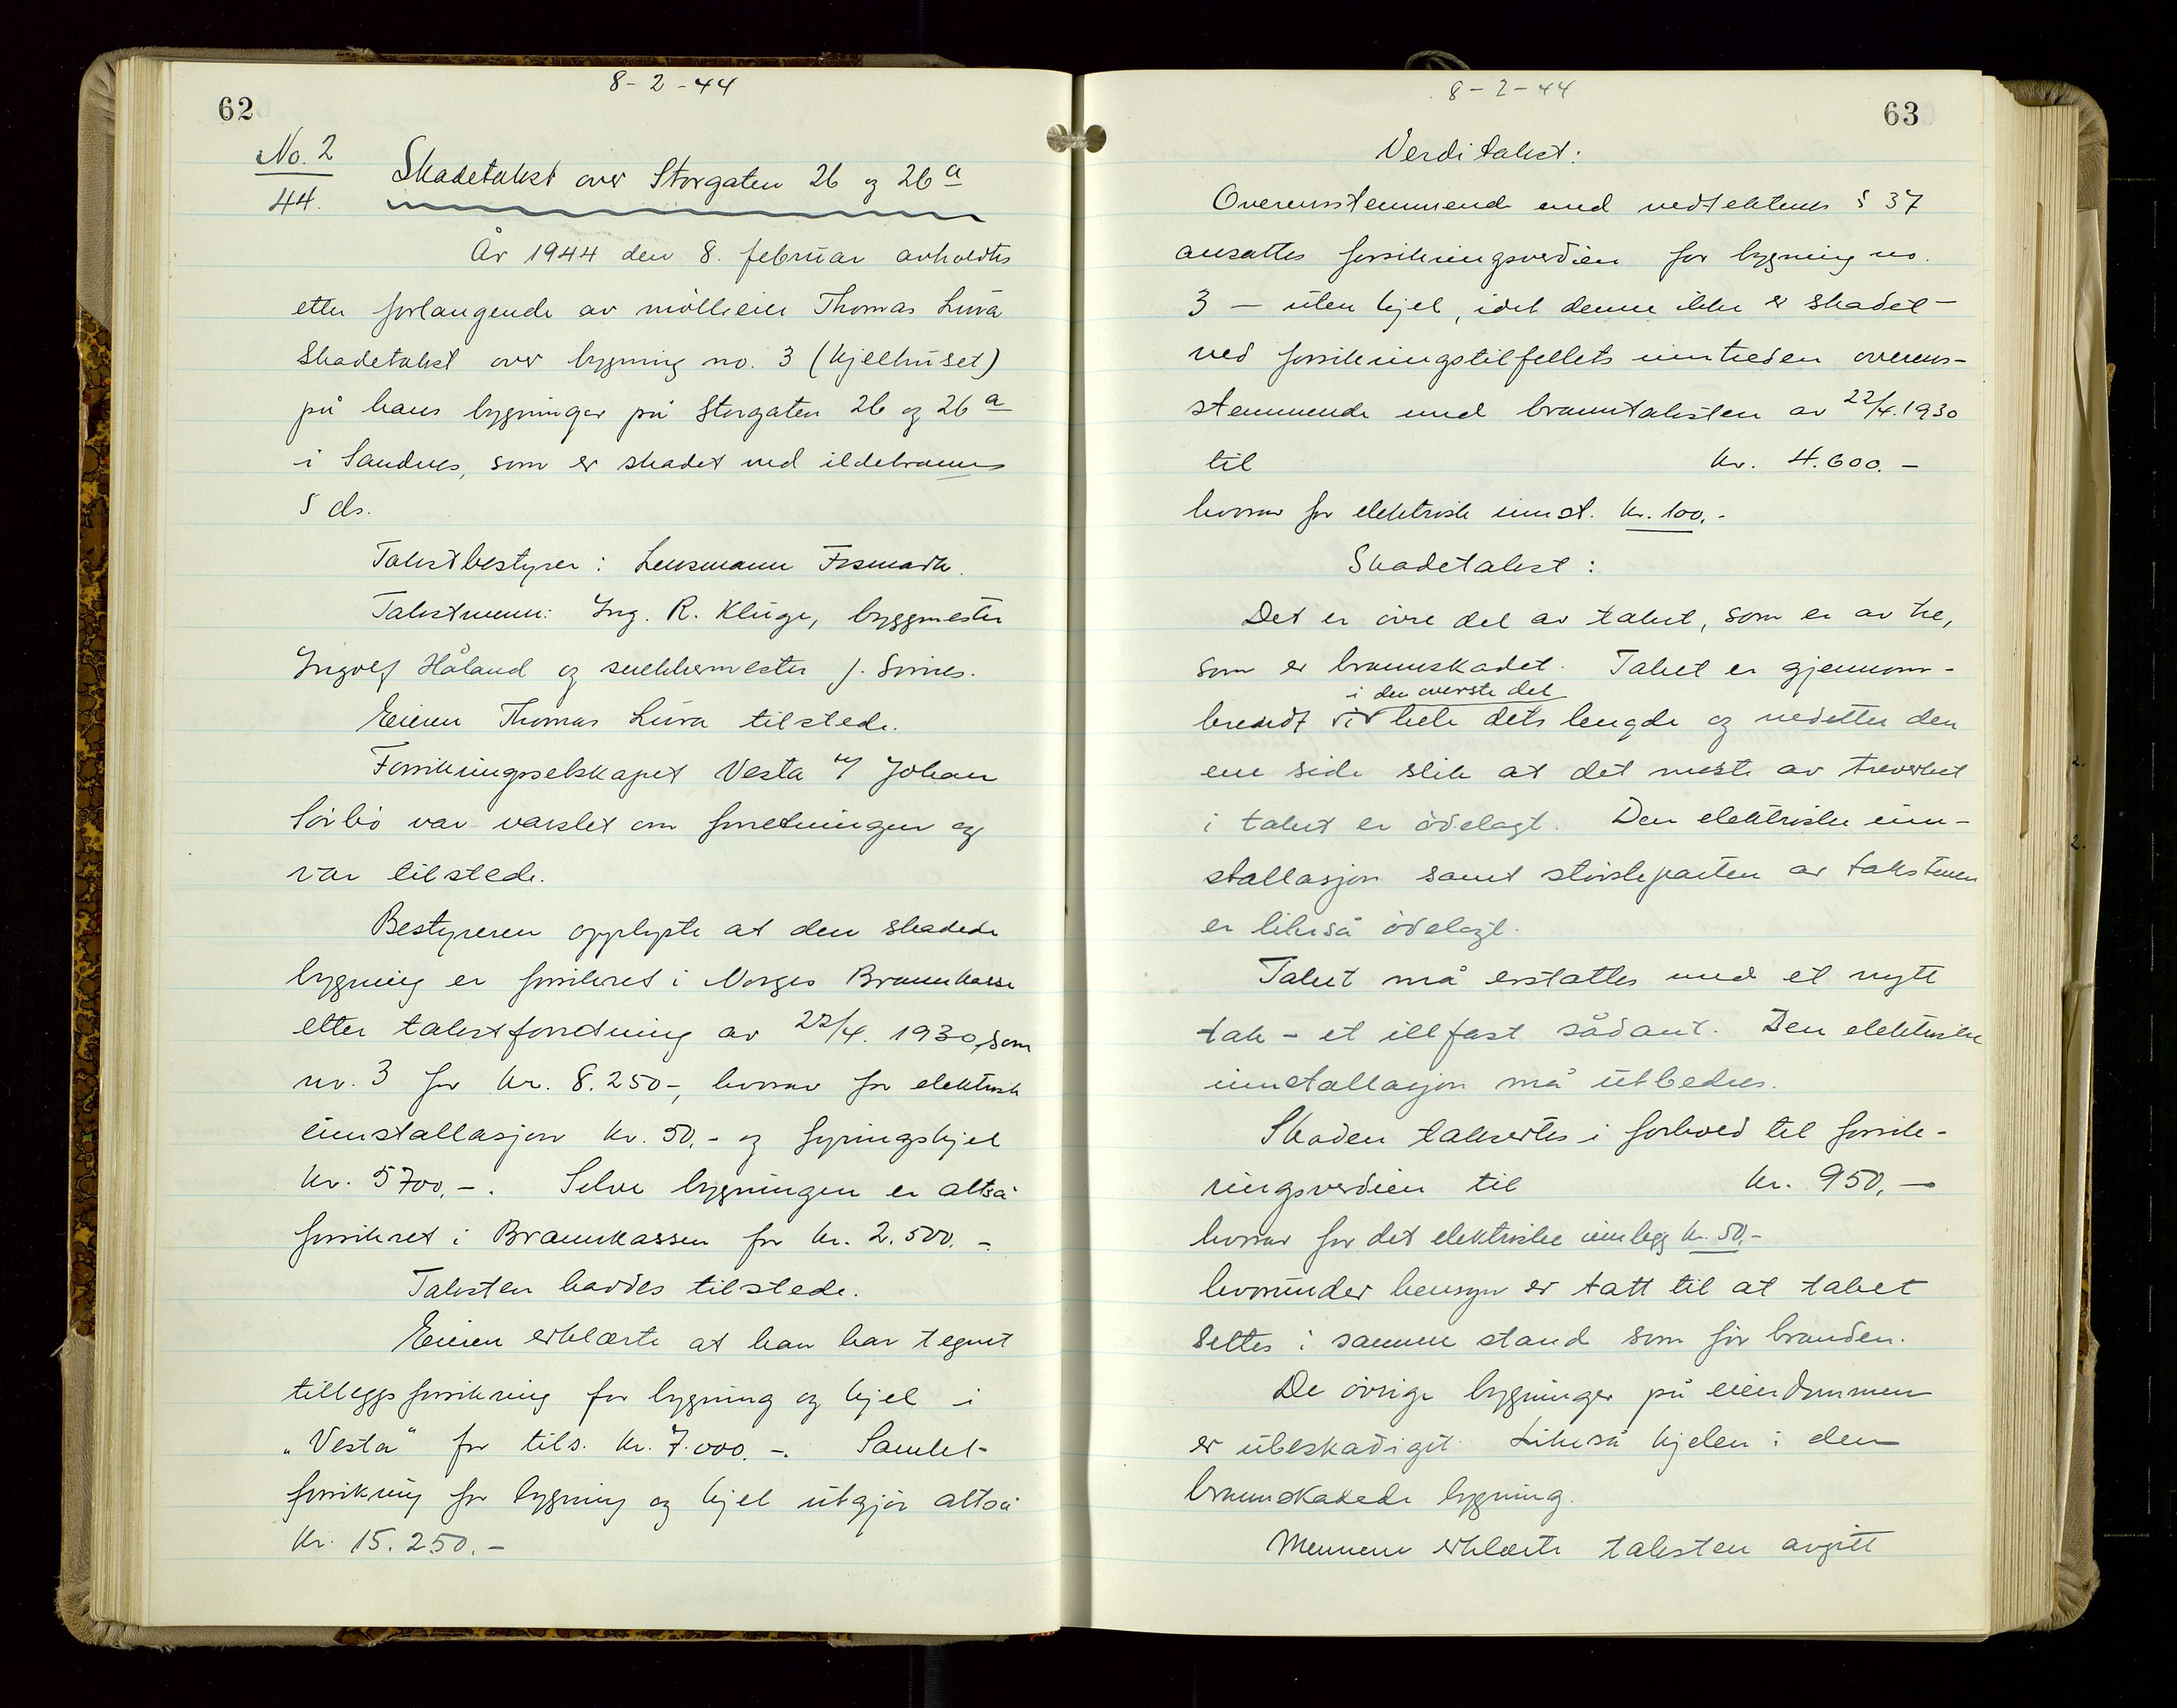 8-2-44
62
No. 2
44.
Skadetakst over Storgaten 26 og 26 a
År 1944 den 8. februar avholdtes
etter forlangende av mölleeier Thomas Lura
Skadetakst over bygning no. 3 (kjelhuset)
på hans bygninger på Storgaten 26 og 26 a
i Sandnes, som er skadet ved ildebrann
5 ds.
Takstbestyrer: Lensmann Fosmark.
Takstmenn: Ing. R. Kluge, byggmester
Ingolf Håland og snekkermester J. Sirnes.
Eieren Thomas Lura tilstede.
Forsikringsselskapet Vesta v/ Johan
Sörbö var varslet om forretningen og
var tilstede.
Bestyreren opplyste at den skadede
bygning er forsikret i Norges Brannkasse
etter takstforretning av 22/4. 1930, som
nr. 3 for kr. 8.250-, hvorav for elektrisk
innstallasjon kr. 50.- og fyringskjel
kr. 5700,-. Selve bygningen er altså
forsikret i Brannkassen for kr. 2.500.-
Taksten haddes tilstede.
Eieren erklærte at han har tegnet
tilleggsforsikring for bygning og kjel i
„Vesta“ for tils. kr. 7.000.-. Samlet
forsikring for bygning og kjel utgjör altså
kr. 15.250.-
8-2-44
63
Verditakst:
Overensstemmende med vedtektenes § 37
ansattes forsikringsverdien for bygning no.
3 - uten kjel, idet denne ikke er skadet -
ved forsikringstilfellets inntreden overens-
stemmende med branntaksten av 22/4.1930
til kr. 4.600.-
hvorav for elektrisk innst. kr. 100,-
Skadetakst:
Det er övre del av taket, som er av tre,
som er brannskadet. Taket er gjennom-
i den överste del
brendt i hele dets lengde og nedetter den
ene side slik at det meste av treverket
i taket er ödelagt. Den elektriske inn-
stallasjon samt störsteparten av takstenen
er likeså ödelagt.
Taket må erstattes med et nytt
tak - et illfast sådant. Den elektriske
innstallasjon må utbedres.
Skaden taksertes i forhold til forsik-
ringsverdien til kr. 950,-
hvorav for det elektriske innlegg kr. 50,-
hvorunder hensyn er tatt til at taket
settes i samme stand som för branden.
De övrige bygninger på eiendommen
er ubeskadiget. Likeså kjelen i den
brannskadede bygning.
Mennene erklærte taksten avgitt